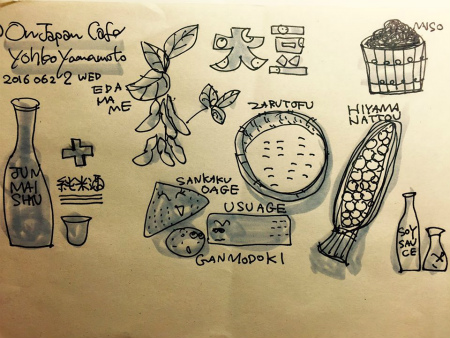 On Japan Cafe
Yohbo Yamamoto
2016 0622 WED
EDA
MA
ME
大豆
MISO
ZARUTOFU
HIYAMA
NATTOU
JUN
MAI
SHU
純米酒
SANKAKU
OAGE
USUAGE
GANMODOKI
SOY
SAU
CE